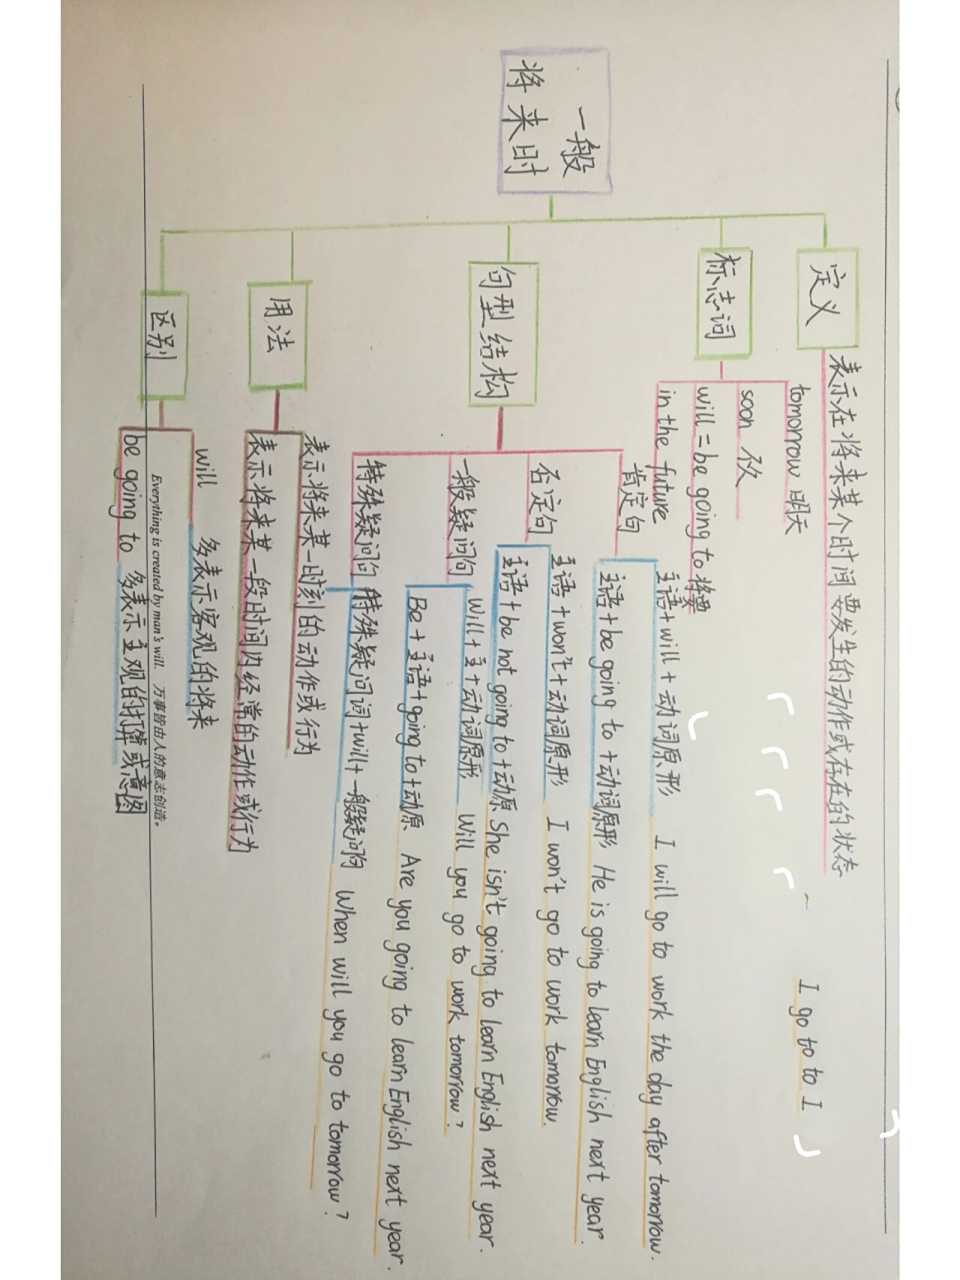 一般
将来时
定义
表示在将来某个时间要发生的动作或存在的状态
标志词
tomorrow 明天
soon
will = be going to 将要
in the future
I go to to I
句型结构
肯定句
主语+will+动词原形 I will go to work the day after tomorrow.
主语+be going to +动词原形 He is going to learn English next year.
否定句
主语+won't+动词原形 I won't go to work tomorrow.
主语+be not going to+动原 She isn't going to learn English next year.
一般疑问句
Will+主+动词原形 Will you go to work tomorrow?
Be+主语+going to+动原 Are you going to learn English next year.
特殊疑问句 特殊疑问词+will+一般疑问句 When will you go to tomorrow?
用法
表示将来某一时刻的动作或行为
表示将来某一段时间内经常的动作或行为
区别
will 多表示客观的将来
be going to 多表示主观的打算或意图
Everything is created by man's will. 万事皆由人的意志创造。